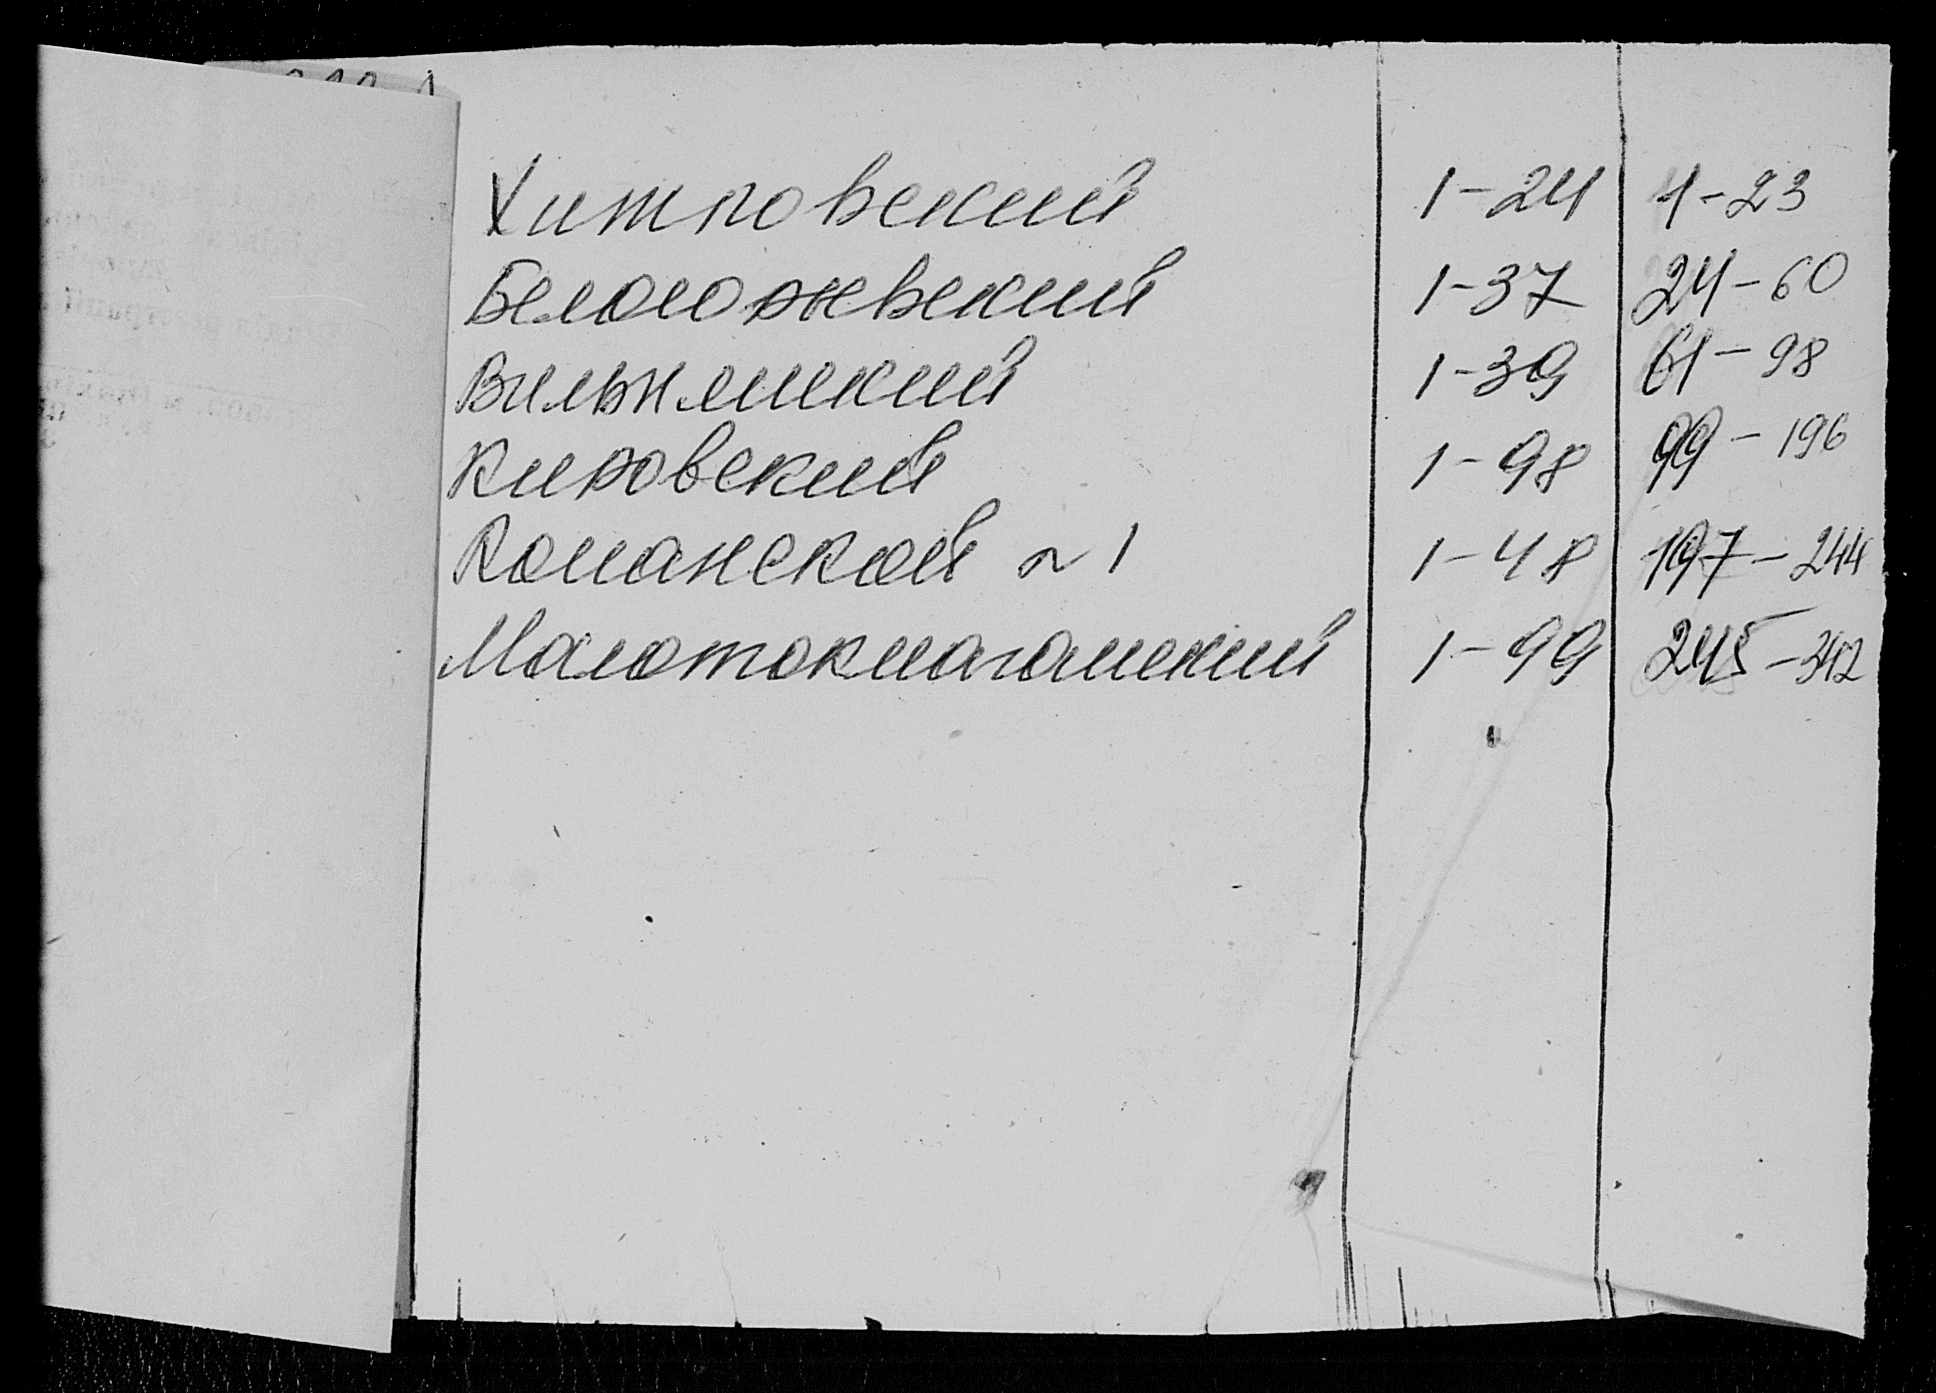 Хитровский 1-24 1-23
Белогорневский 1-37 24-60
Вильнянский 1-39 61-98
Кировский 1-98 99-196
Команской ~1 1-48 197-244
Малотокмачанский 1-99 245-342